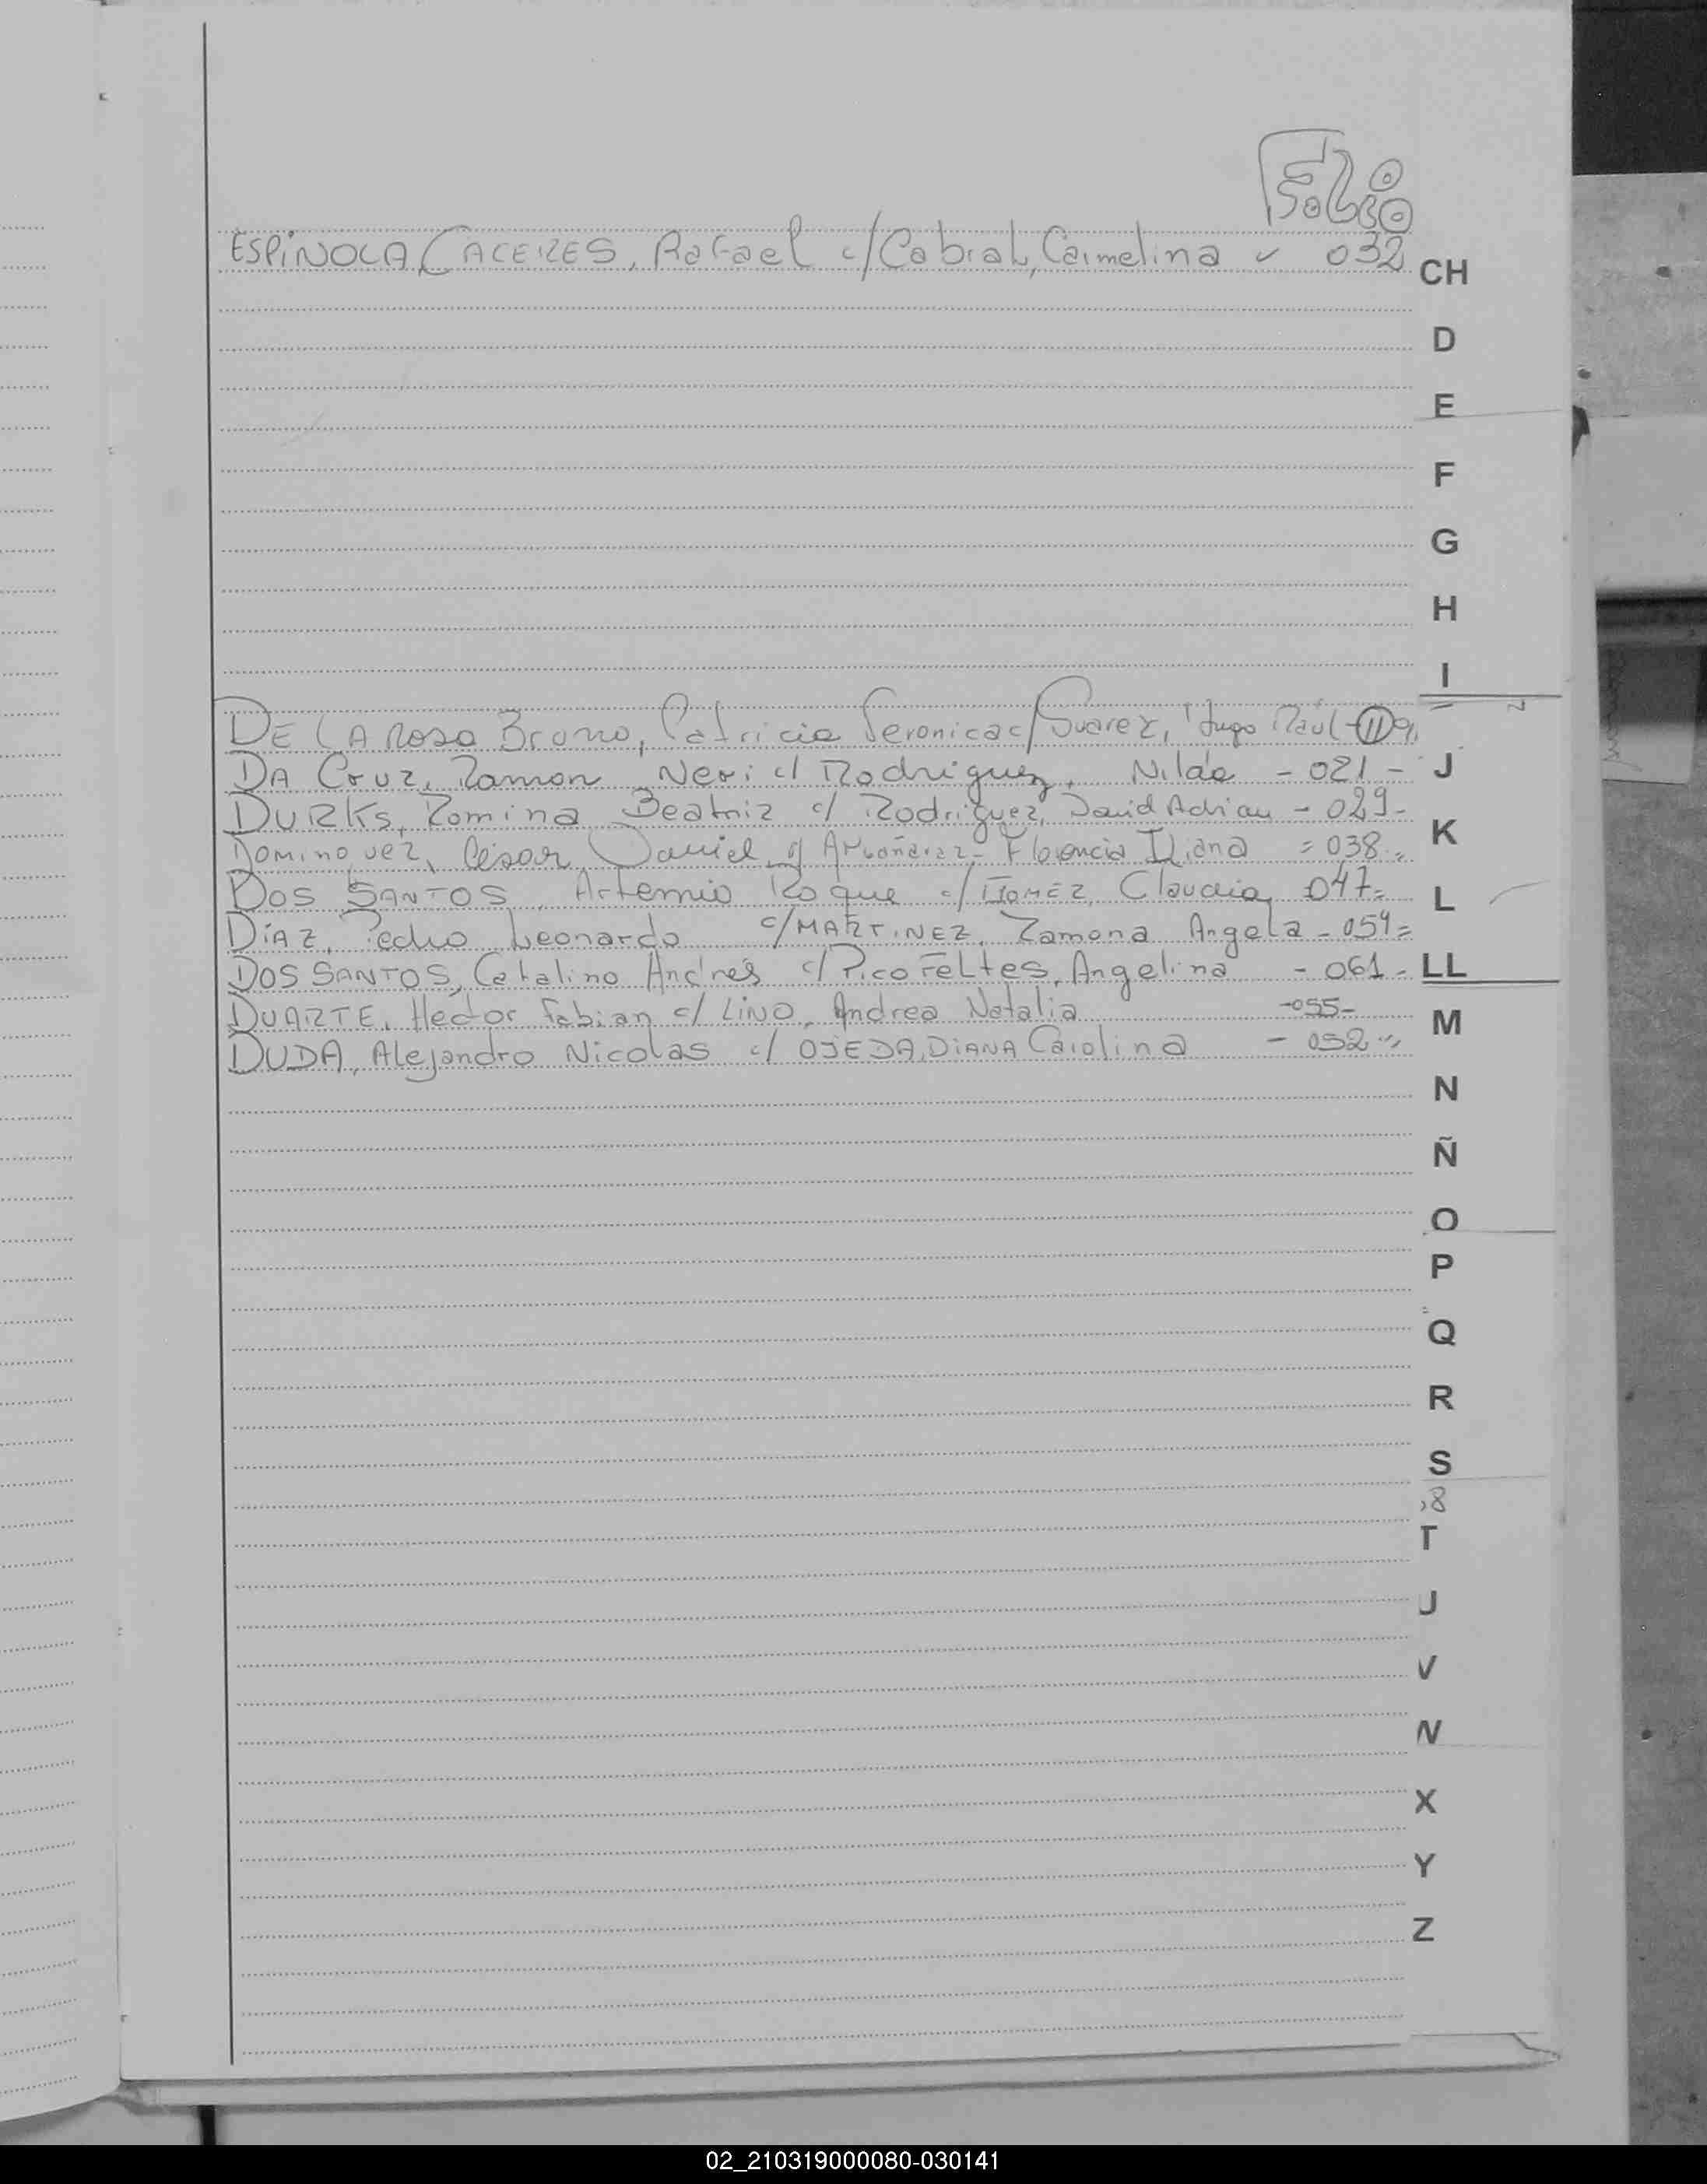 Folio
ESPINOLA CACERES, Rafael c/ Cabral, Carmelina - 032
CH
D
E
F
G
H
I
DE LA ROSA Bruno, Patricia Veronica c/ Suarez, Hugo Raúl - 119
DA Cruz, Ramon Neri c/ Rodriguez, Nilda - 021 -
J
DURKS, Romina Beatriz c/ Rodriguez, David Adrian - 029 -
K
Dominguez, César Daniel c/ Florencia Iliana = 038 =
DOS SANTOS, Artemio Roque c/ GOMEZ, Claudia 047 =
L
DIAZ, Pedro Leonardo c/ MARTINEZ, Ramona Angela - 054 =
DOS SANTOS, Catalino Andrés c/ Pico Feltes, Angelina - 061 -
LL
DUARTE, Hector Fabian c/ LINO, Andrea Natalia - 055 -
M
DUDA, Alejandro Nicolas c/ OJEDA, DIANA Carolina - 052 =
N
Ñ
O
P
Q
R
S
T
U
V
W
X
Y
Z
02_210319000080-030141